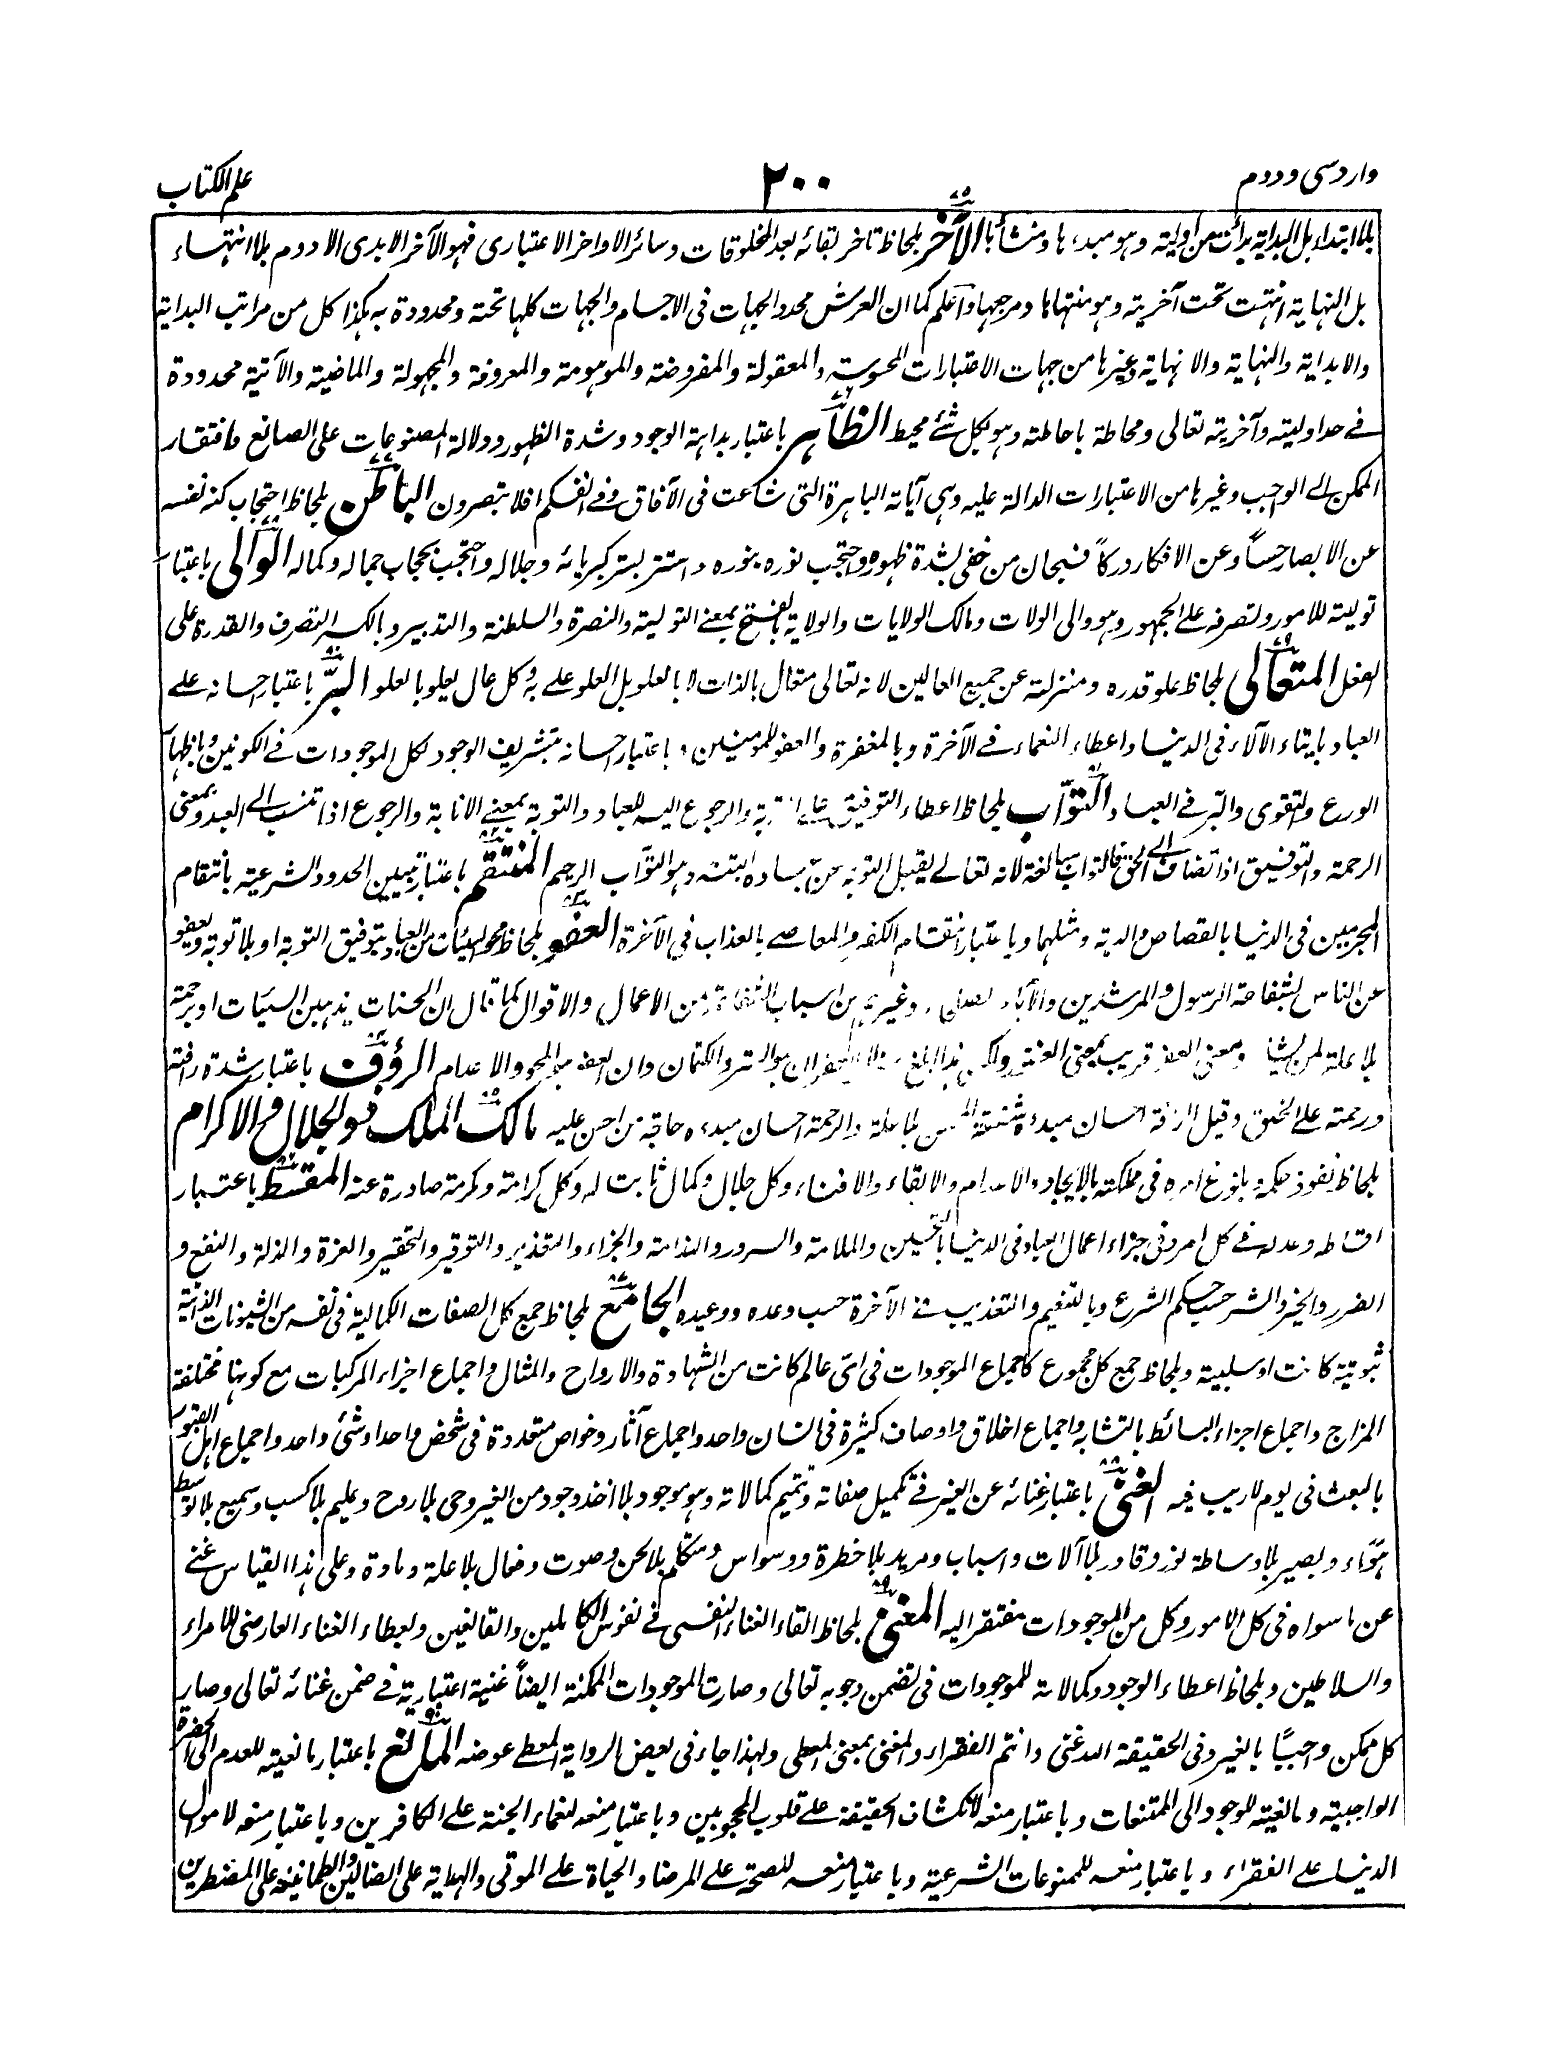 وارد سی و دوم
۲۰۰
علم الکتاب
بلا ابتداء بل البدایة بدأت من اولیته وهو مبدءها ومنشأها الآخر بلحاظ تاخر بقائه بعد المخلوقات وسائر الاواخر الاعتباری فهو الآخر الابدی الادوم بلا انتهاء
بل النهایة انتهت تحت آخریته وهو منتهاها ومرجعها واعلم کما ان العرش محدد الجهات فی الاجسام والجهات کلها تحته ومحدودة به هکذا کل من مراتب البدایة
والابدایة والنهایة والانهایة وغیرها من جهات الاعتبارات المحسوسة والمعقولة والمفروضة والموهومة والمعروفة والمجهولة والماضیة والآتیة محدودة
فے حد اولیته وآخریته تعالی ومحاطة باحاطته وهو بکل شئ محیط الظاهر باعتبار بداهة الوجود وشدة الظهور ودلالة المصنوعات علی الصانع وافتقار
الممکن الے الواجب وغیرها من الاعتبارات الدالة علیه وهی آیاته الباهرة التی شاعت فی الآفاق وفے انفسکم افلا تبصرون الباطن بلحاظ احتجاب کنه نفسه
عن الابصار حساً وعن الافکار درکاً فسبحان من خفی بشدة ظهوره واحتجب نوره بنوره واستتر بستر کبریائه وجلاله واحتجب بحجاب جماله وکماله الوالی باعتبار
تولیته للامور وتصرفه علے الجمهور وهو والی الولات ومالک الولایات والولایة بالفتح بمعنے التولیة والنصرة والسلطنة والتدبیر وبالکسر التصرف والقدرة علی
الفعل المتعالی بلحاظ علو قدره ومنزلته عن جمیع العالین لانه تعالی متعال بالذات لا بالعلو بل العلو علے به وکل عال یعلو بالعلو البر باعتبار احسانه علے
العباد بایتاء الآلاء فی الدنیا واعطاء النعماء فے الآخرة وبالمغفرة والعفو للمومنین وباعتبار احسانه بتشریف الوجود لکل الموجودات فے الکونین وباظهار
الورع والتقوی والبر فے العباد التواب بلحاظ اعطاء التوفیق علے التوبة والرجوع الیه للعباد والتوبة بمعنے الانابة والرجوع اذا تنسب الے العبد وبمعنی
الرحمة والتوفیق اذا تضاف الے الحق فالتواب مبالغة لانه تعالے یقبل التوبة عن عباده البتة وهو التواب الرحیم المنتقم باعتبار تبیین الحدود الشرعیة بانتقام
المجرمین فی الدنیا بالقصاص والدیة ومثلها وباعتبار انتقام الکفر والمعاصے بالعذاب فی الآخرة العفو بلحاظ محو السیئات من العباد بتوفیق التوبة او بلا توبة ویعفو
عن الناس بشفاعة الرسول والمرشدین والآباء وغیره من اسباب الشفاعة من الاعمال والاقوال کما قال ان الحسنات یذهبن السیئات او برحمته
بلا علة لمن یشاء ومعنی العفو قریب بمعنی الغفور ولکن هذا ابلغ لان الغفران هو الستر والکتمان وان العفو هو المحو والاعدام الرؤف باعتبار شدة رافته
ورحمته علے الخلق وقیل الرافة احسان مبدءه شفقة المحسن بلا علة والرحمة احسان مبدءه حاقة من احسن علیه مالک الملک ذو الجلال والاکرام
بلحاظ نفوذ حکمه وبلوغ امره فی مملکته بالایجاد والاعدام والابقاء والافناء وکل جلال وکمال ثابت له وکل کرامة وکرمة صادرة عنه المقسط باعتبار
اقساطه وعدله فے کل امر وفی جزاء اعمال العباد فی الدنیا بالتحسین والملامة والسرور والندامة والجزاء والتعذیر والتوقیر والتحقیر والعزة والذلة والنفع و
الضرر والخیر والشر حسب حکم الشرع وبالتنعیم والتعذیب فے الآخرة حسب وعده ووعیده الجامع بلحاظ جمع کل الصفات الکمالیة فی نفسه من الشیونات الذاتیة
ثبوتیة کانت او سلبیة وبلحاظ جمع کل مجموع کاجماع الموجودات فی ای عالم کانت من الشهادة والارواح والمثال واجماع اجزاء المرکبات مع کونها مختلفة
المزاج واجماع اجزاء البسائط بالتشابه واجماع اخلاق واوصاف کثیرة فی انسان واحد واجماع آثار وخواص متعددة فی شخص واحد او شئ واحد واجماع اهل القبور
بالبعث فی یوم لاریب فیه الغنی باعتبار غنائه عن الغیر فے تکمیل صفاته وتتمیم کمالاته وهو موجود بلا اخذ وجود من الغیر وحی بلا روح وعلیم بلا کسب وسمیع بلا توسط
هواء وبصیر بلا وساطة نور وقادر بلا آلات واسباب ومرید بلا خطرة ووسواس ومتکلم بلا لحن وصوت وفعال بلا علة ومادة وعلی هذا القیاس غنے
عن ماسواه فی کل الامور وکل من الموجودات مفتقر الیه المغنی بلحاظ القاء الغناء النفسی فے نفوس الکاملین والقانعین وبعطاء الغناء العارضی للامراء
والسلاطین وبلحاظ اعطاء الوجود وکمالاته للموجودات فی تضمن وجوبه تعالی وصارت الموجودات الممکنة ایضاً غنیة اعتباریة فے ضمن غنائه تعالی وصار
کل ممکن واجباً بالغیر وفی الحقیقة الله غنی وانتم الفقراء والمغنی بمعنی المعطی ولهذا جاء فی بعض الروایة المعطے عوضه المانع باعتبار مانعیته للعدم الی الحضرة
الواجبیة ومانعیته للوجود الی الممتنعات وباعتبار منعه لانکشاف الحقیقة علے قلوب المحجوبین وباعتبار منعه لنعماء الجنة علے الکافرین وباعتبار منعه لاموال
الدنیا علے الفقراء وباعتبار منعه للممنوعات الشرعیة وباعتبار منعه للصحة علے المرضا والحیاة علے الموتی والهدایة علی الضالین والطمانینة علی المضطرین